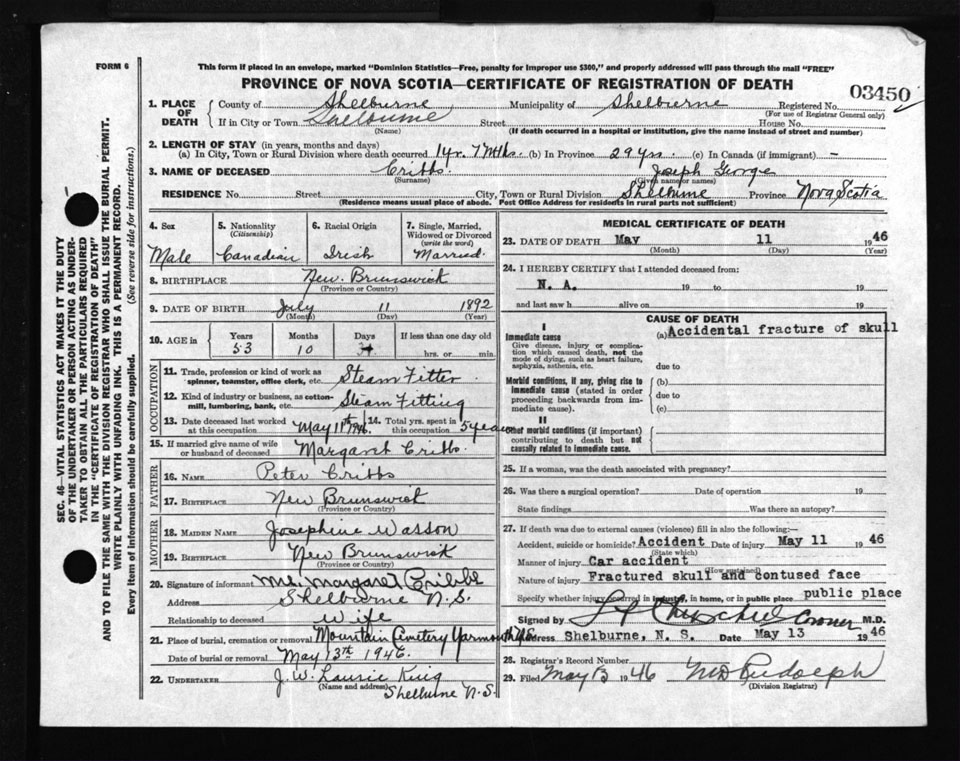 FORM 6
This form if placed in an envelope, marked "Dominion Statistics—Free, penalty for improper use $300," and properly addressed will pass through the mail "FREE"
PROVINCE OF NOVA SCOTIA—CERTIFICATE OF REGISTRATION OF DEATH
03450
1. PLACE OF DEATH
County of Shelburne Municipality of Shelburne Registered No.
(For use of Registrar General only)
If in City or Town Shelburne Street House No.
(Name) (If death occurred in a hospital or institution, give the name instead of street and number)
2. LENGTH OF STAY (in years, months and days)
(a) In City, Town or Rural Division where death occurred 1 yr. 7 Mths. (b) In Province 29 yrs. (c) In Canada (if immigrant) —
3. NAME OF DECEASED Cribbs. Joseph George
(Surname) (Given name or names)
RESIDENCE No. Street City, Town or Rural Division Shelburne Province Nova Scotia
(Residence means usual place of abode. Post Office Address for residents in rural parts not sufficient)
4. Sex
Male
5. Nationality
(Citizenship)
Canadian
6. Racial Origin
Irish
7. Single, Married, Widowed or Divorced
(write the word)
Married.
8. BIRTHPLACE New. Brunswick
(Province or Country)
9. DATE OF BIRTH July 11 1892
(Month) (Day) (Year)
10. AGE in Years Months Days If less than one day old
53 10 hrs. or min.
OCCUPATION
11. Trade, profession or kind of work as spinner, teamster, office clerk, etc. Steam Fitter.
12. Kind of industry or business, as cotton-mill, lumbering, bank, etc. Steam Fitting
13. Date deceased last worked at this occupation May 11th 1946.
14. Total yrs. spent in this occupation 5 years
15. If married give name of wife or husband of deceased Margaret Cribbs.
FATHER
16. NAME Peter Cribbs
17. BIRTHPLACE New Brunswick
(Province or Country)
MOTHER
18. MAIDEN NAME Josephine Wasson
19. BIRTHPLACE New Brunswick
(Province or Country)
20. Signature of informant Mrs. Margaret Cribbs
Address Shelburne N.S.
Relationship to deceased Wife
21. Place of burial, cremation or removal Mountain Cemetery Yarmouth N.S.
Date of burial or removal May 13th 1946.
22. UNDERTAKER J. W. Laurie King
(Name and address) Shelburne N.S.
MEDICAL CERTIFICATE OF DEATH
23. DATE OF DEATH May 11 1946
(Month) (Day) (Year)
24. I HEREBY CERTIFY that I attended deceased from:
N. A. 19 to 19
and last saw h alive on 19
CAUSE OF DEATH
I
Immediate cause
Give disease, injury or complication which caused death, not the mode of dying, such as heart failure, asphyxia, asthenia, etc.
(a) Accidental fracture of skull
due to
Morbid conditions, if any, giving rise to immediate cause (stated in order proceeding backwards from immediate cause).
(b)
due to
(c)
II
Other morbid conditions (if important) contributing to death but not causally related to immediate cause.
25. If a woman, was the death associated with pregnancy?
26. Was there a surgical operation? Date of operation 19
State findings Was there an autopsy?
27. If death was due to external causes (violence) fill in also the following:—
Accident, suicide or homicide? Accident Date of injury May 11 1946
(State which)
Manner of injury Car accident
(How sustained)
Nature of injury Fractured skull and contused face
Specify whether injury occurred in industry, in home, or in public place public place
Signed by Coroner M.D.
Address Shelburne, N. S. Date May 13 1946
28. Registrar's Record Number
29. Filed May 13 1946
(Division Registrar)
SEC. 46—VITAL STATISTICS ACT MAKES IT THE DUTY
OF THE UNDERTAKER OR PERSON ACTING AS UNDERTAKER TO OBTAIN ALL THE PARTICULARS REQUIRED
IN THE "CERTIFICATE OF REGISTRATION OF DEATH"
AND TO FILE THE SAME WITH THE DIVISION REGISTRAR WHO SHALL ISSUE THE BURIAL PERMIT.
WRITE PLAINLY WITH UNFADING INK. THIS IS A PERMANENT RECORD.
Every item of information should be carefully supplied. (See reverse side for instructions.)